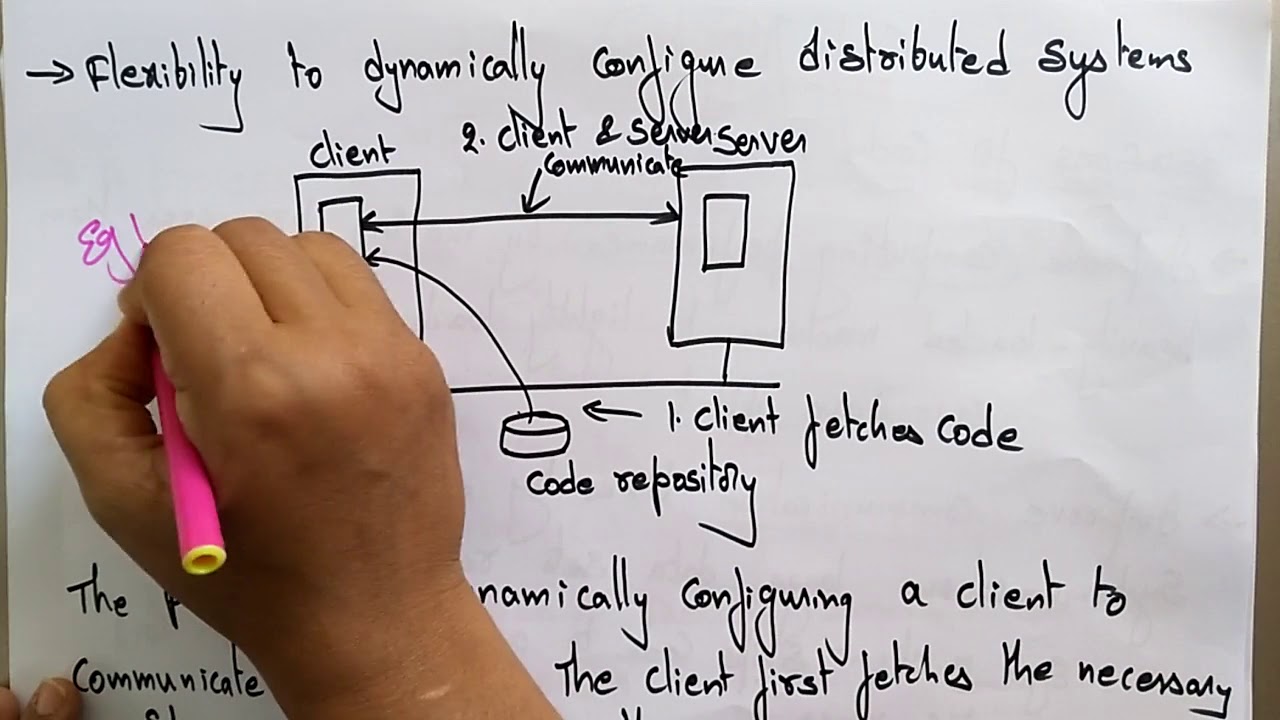 → Flexibility to dynamically configure distributed systems
2. client & server
communicate
client
server
Eg
← 1. client fetches code
code repository
The namically configuring a client to
communicate The client first fetches the necessary